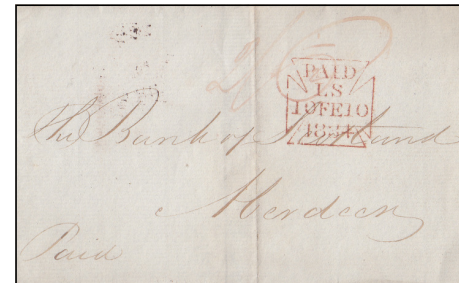 PAID
LS
10FE10
1834
The Bank of Scotland
Aberdeen
Paid